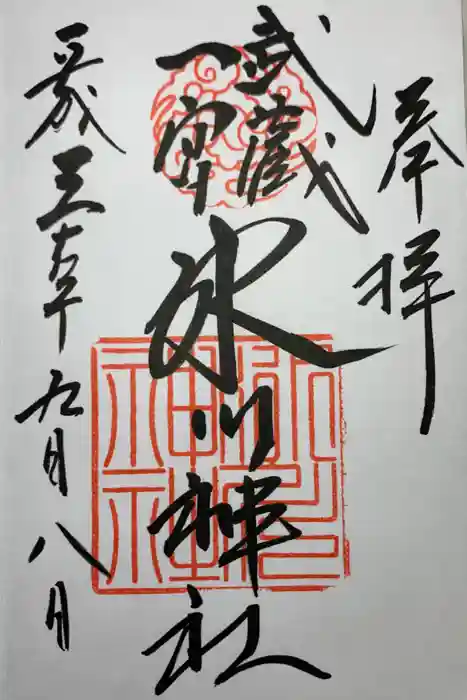 奉拝
武蔵
一宮
氷川神社
平成三十年九月八日
氷川神社